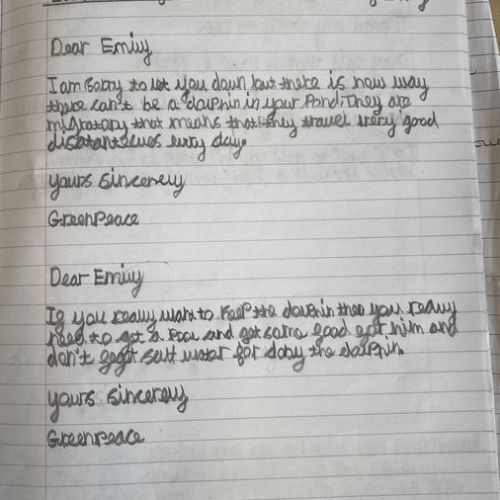 Dear Emily
I am sorry to let you down but there is now way
there can't be a dolphin in your Pond. They are
migratory that means that they travel very good
disatantslves evry day.
yours sincerely
GreenPeace
Dear Emily
If you really want to keep the dolphin then you really
need to get a Pool and get some good for him and
don't geget salt water for doby the dolphin.
yours sincerely
GreenPeace